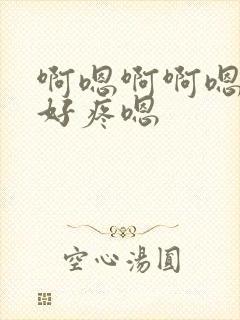 啊嗯啊啊嗯
好疼嗯
空心湯圓